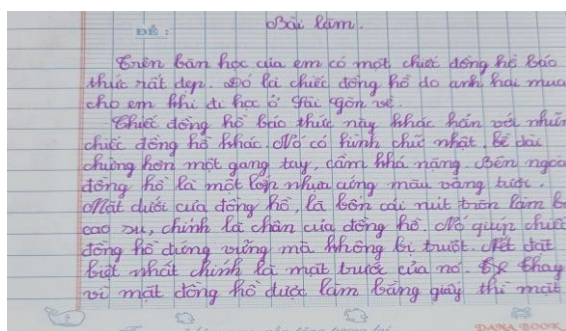 Bài làm.
ĐỀ :
Trên bàn học của em có một chiếc đồng hồ báo
thức rất đẹp. Đó là chiếc đồng hồ do anh hai mua
cho em khi đi học ở Sài Gòn về.
Chiếc đồng hồ báo thức này khác hẳn với những
chiếc đồng hồ khác. Nó có hình chữ nhật, bề dài
chừng hơn một gang tay, cầm khá nặng. Bên ngoài
đồng hồ là một lớp nhựa cứng màu vàng tươi.
Mặt dưới của đồng hồ, là bốn cái nút tròn làm b
cao su, chính là chân của đồng hồ. Nó giúp chiếc
đồng hồ đứng vững mà không bị trượt. Nét đặt
biệt nhất chính là mặt trước của nó. Thay
vì mặt đồng hồ được làm bằng giấy thì mặt
DANA BOOK